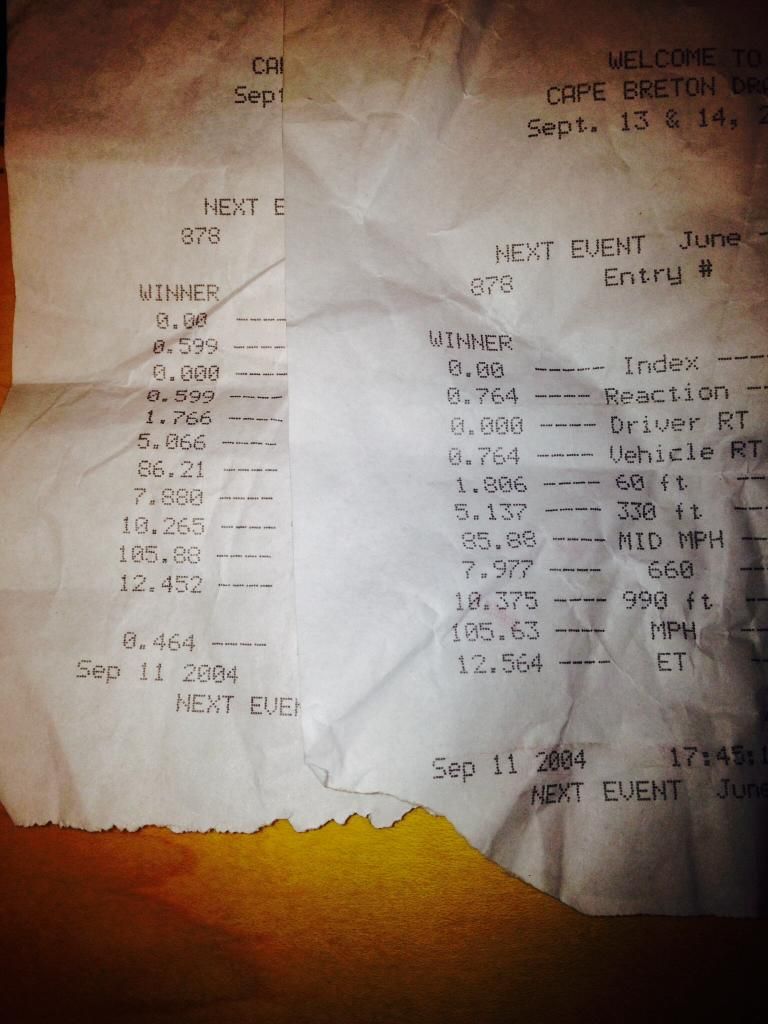 CA
Sept
NEXT E
878
WINNER
0.00 -----
0.599 -----
0.000 -----
0.599 ----
1.766 ----
5.066 ----
86.21 ----
7.880 ----
10.265 ----
105.88 ----
12.452 ----
0.464 ----
Sep 11 2004
NEXT EVEN
WELCOME TO
CAPE BRETON DR
Sept. 13 & 14, 2
NEXT EVENT June -
878 Entry #
WINNER
0.00 ----- Index ----
0.764 ---- Reaction --
0.000 ---- Driver RT
0.764 ---- Vehicle RT
1.806 ---- 60 ft --
5.137 ---- 330 ft --
85.88 ----- MID MPH --
7.977 ---- 660 --
10.375 ---- 990 ft --
105.63 ---- MPH --
12.564 ---- ET --
Sep 11 2004 17:45:1
NEXT EVENT June